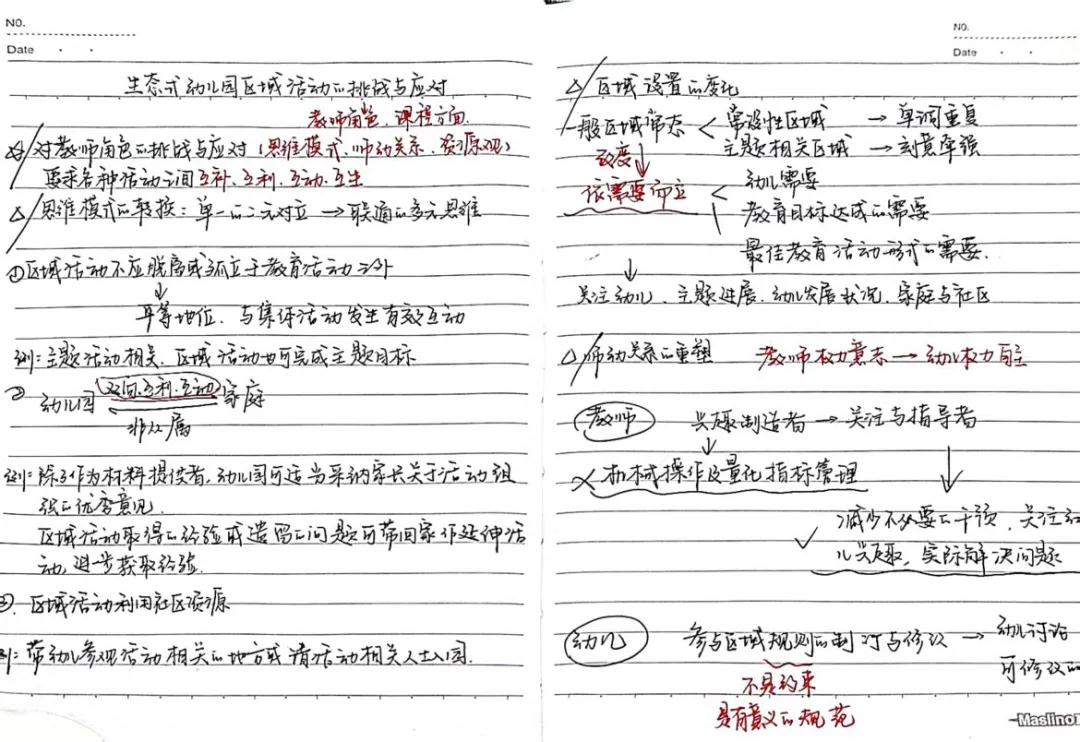 NO.
Date
生态式幼儿园区域活动的挑战与应对
教师角色、课程方面
对教师角色的挑战与应对(思维模式、师幼关系、资源观)
要求各种活动之间互补、互利、互动、互生
△思维模式的转换：单一的二元对立→联通的多元思维
①区域活动不应脱离或孤立于教育活动之外
↓
平等地位、与集体活动发生有效互动
例：主题活动相关、区域活动也可完成主题目标
② 幼儿园 双向、互利、互动 家庭
非从属
例：除了作为材料提供者，幼儿园可适当采纳家长关于活动组
织的优秀意见
区域活动取得的经验或遗留的问题可带回家作延伸活
动，进一步获取经验.
③. 区域活动利用社区资源
例：带幼儿参观活动相关的地方或请活动相关人士入园.
NO.
Date
△区域设置的变化
一般区域常态 < 常设性区域 → 单调重复
主题相关区域 → 刻意牵强
改变↓
依需要而立 < 幼儿需要
教育目标达成的需要
最佳教育活动形式的需要.
↓
关注幼儿、主题进展、幼儿发展状况、家庭与社区
△师幼关系的重塑 教师权力意志→幼儿权力自主
教师 兴趣制造者→关注与指导者
× 机械操作及量化指标管理
✓ 减少不必要的干预、关注幼
儿兴趣，实际解决问题
幼儿 参与区域规则的制订与修改 → 幼儿讨论
可修改的
不是约束
是有意义的规范
Maslino